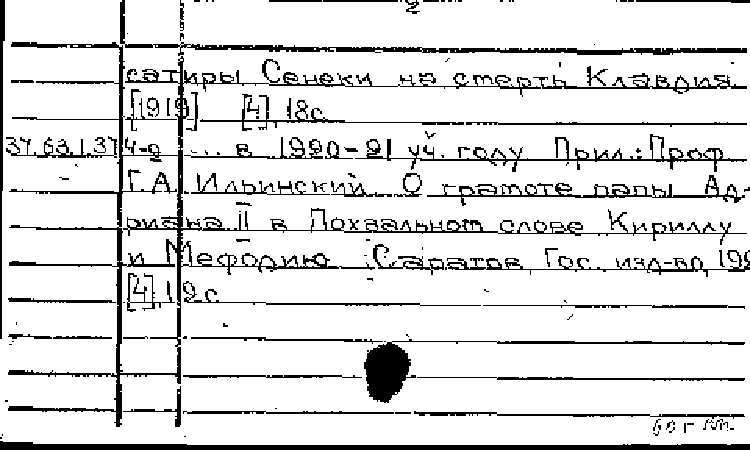 2
сатиры Сенеки на смерть Клавдия
[1919] [4], 18с
37.63.1.37 4-2 ... в 1920-21 уч. году Прил.: Проф
Г.А. Ильинский. О грамоте папы Ад-
риана II в Похвальном слове Кириллу
и Мефодию Саратов, Гос. изд-во, 192
[4], 12с